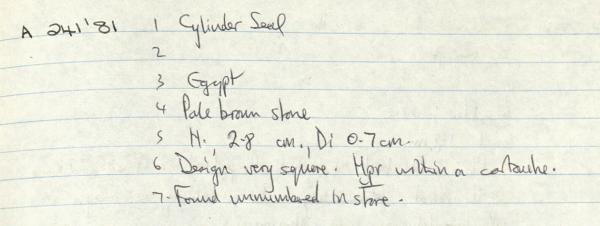 A 241'81 1 Cylinder Seal
2
3 Egypt
4 Pale brown stone
5 H. 2.8 cm., Di 0.7cm.
6 Design very square. Hpr within a cartouche.
7. Found unnumbered in store.